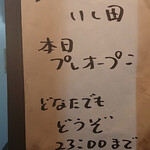 いし田
本日
プレオープン
どなたでも
どうぞ
23:00まで